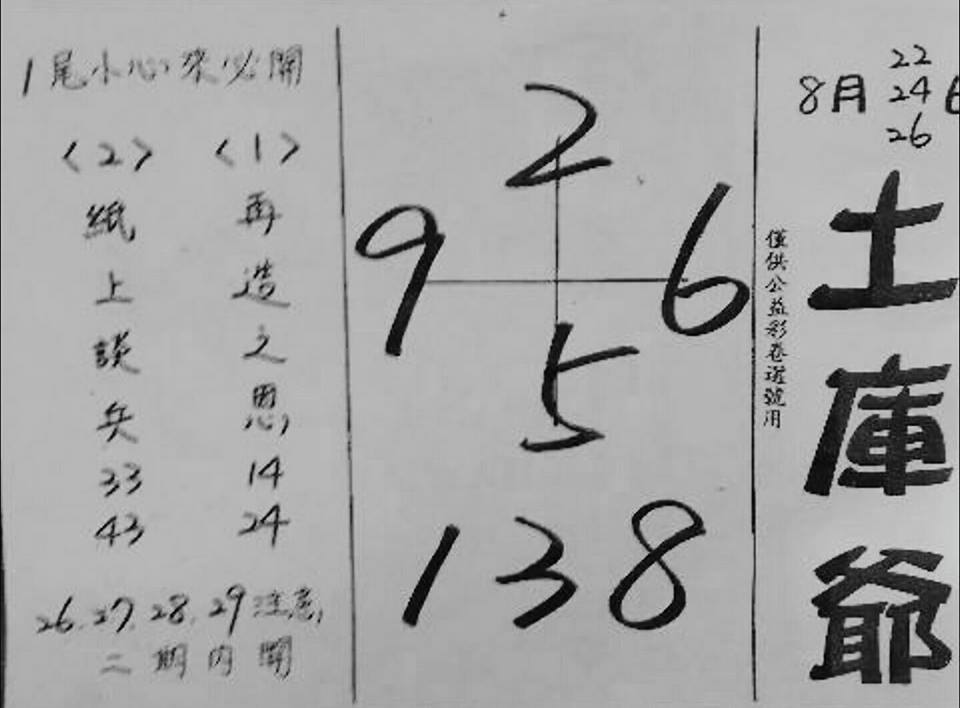 8月 22 24 26日
土庫爺
僅供公益彩卷選號用
2
9 6
5
1 3 8
1尾小心來必開
〈1〉
再造之恩
14
24
〈2〉
紙上談兵
33
43
26. 27. 28. 29注意,
二期内開